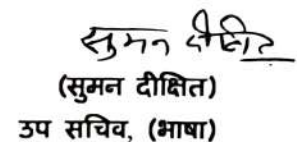 सुमन दीक्षित
(सुमन दीक्षित)
उप सचिव, (भाषा)